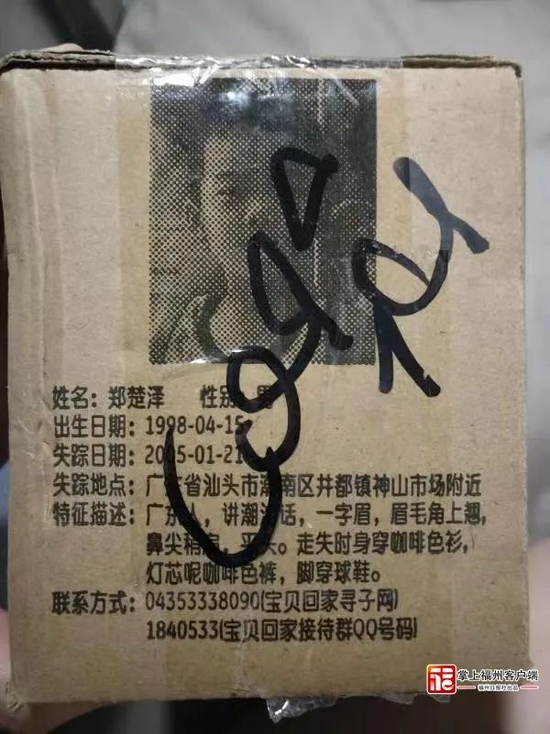 姓名：郑楚泽 性别：男
出生日期：1998-04-15
失踪日期：2005-01-21
失踪地点：广东省汕头市潮南区井都镇神山市场附近
特征描述：广东人，讲潮汕话，一字眉，眉毛角上翘，
鼻尖稍扁，平头。走失时身穿咖啡色衫，
灯芯呢咖啡色裤，脚穿球鞋。
联系方式：04353338090(宝贝回家寻子网)
1840533(宝贝回家接待群QQ号码)
掌上福州客户端
福州日报社出品